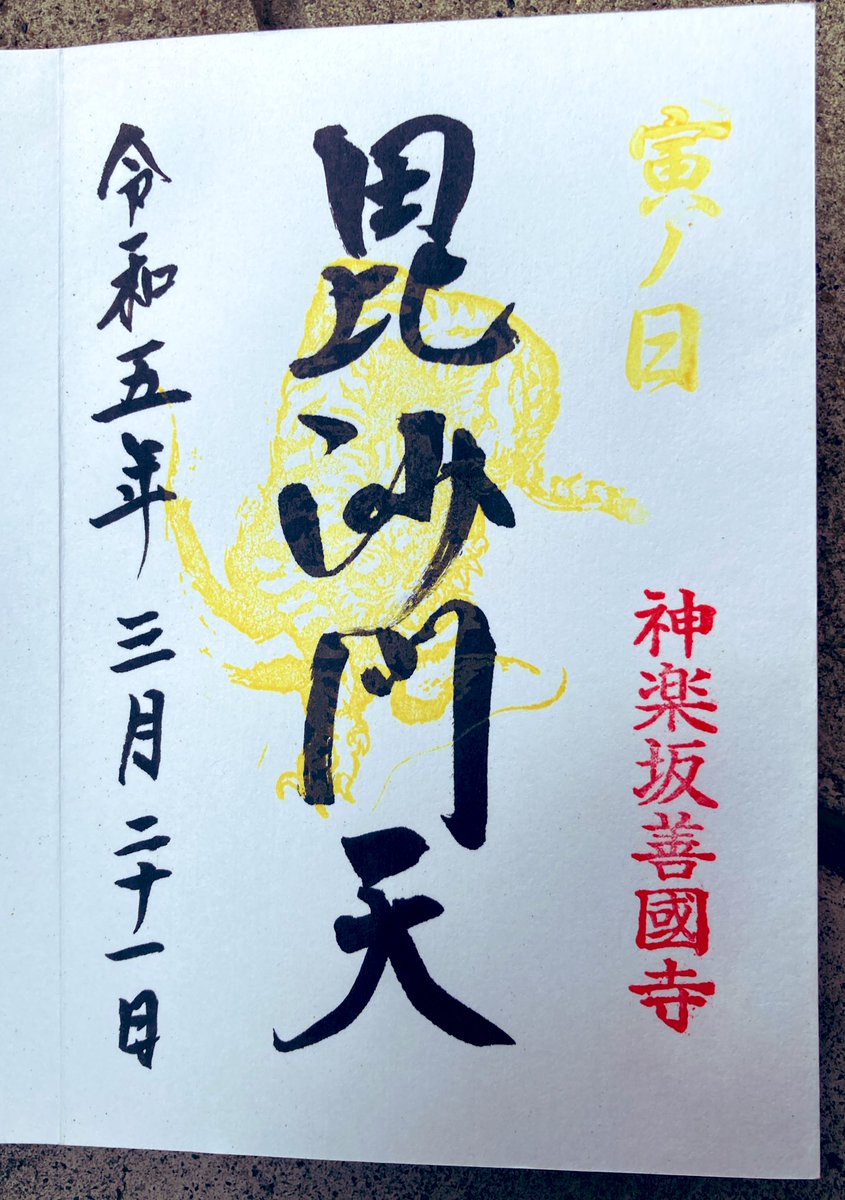 寅ノ日
神楽坂善國寺
毘沙門天
令和五年三月二十一日